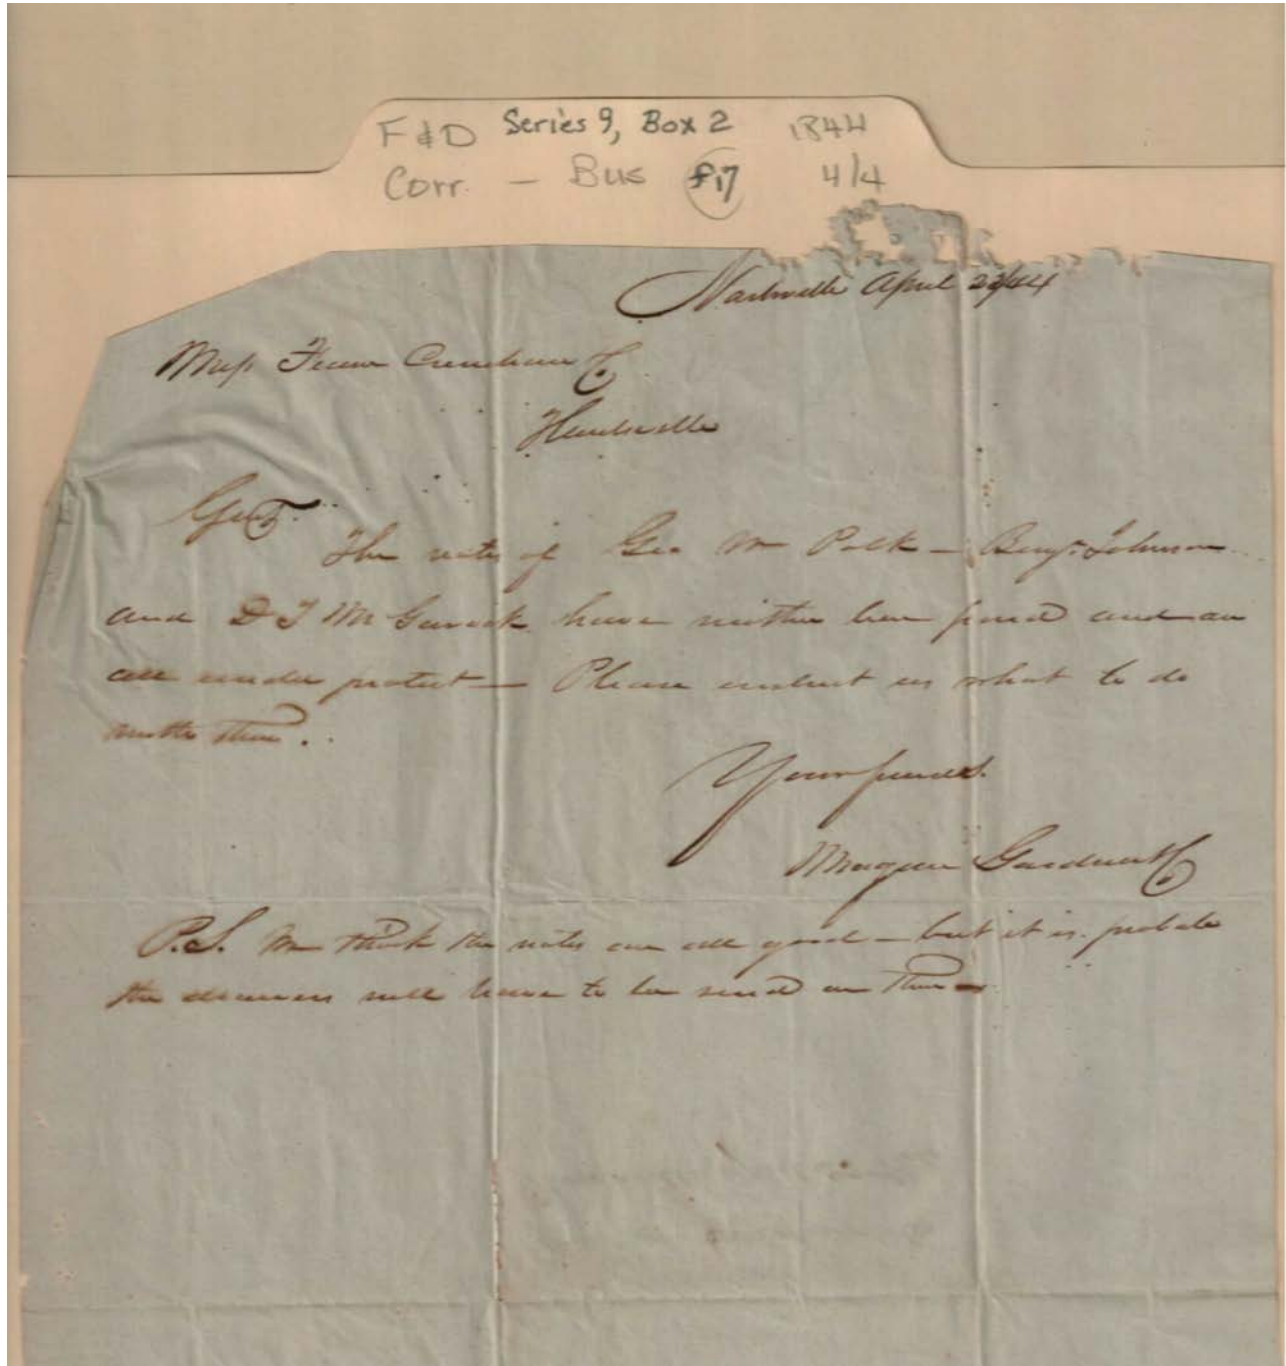 F & D Series 9, Box 2 1844
Corr. - Bus f17 4/4
Nashville April 23/44
Mess Fearn Crenshaw & Co.
Huntsville
Gent.
The notes of Geo W Polk — Benj. Johnson
and D T McGavock have neither been paid and are
all under protest — Please instruct us what to do
with them.
Your friends.
Gardner & Co
P.S. We think the notes are all good — but it is probable
the drawers will have to be sued on them —